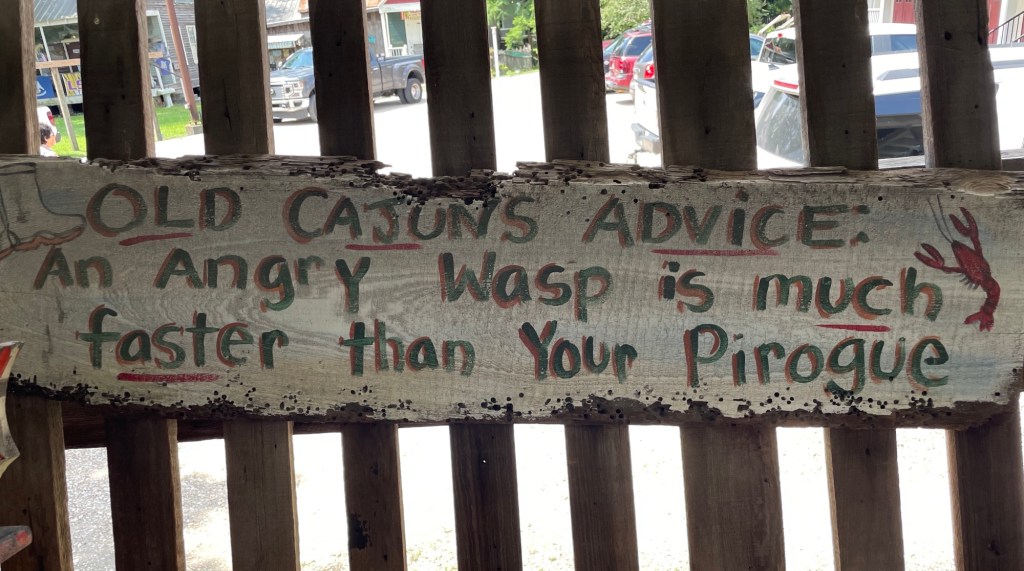 OLD CAJUNS ADVICE:
An Angry Wasp is much
faster than Your Pirogue